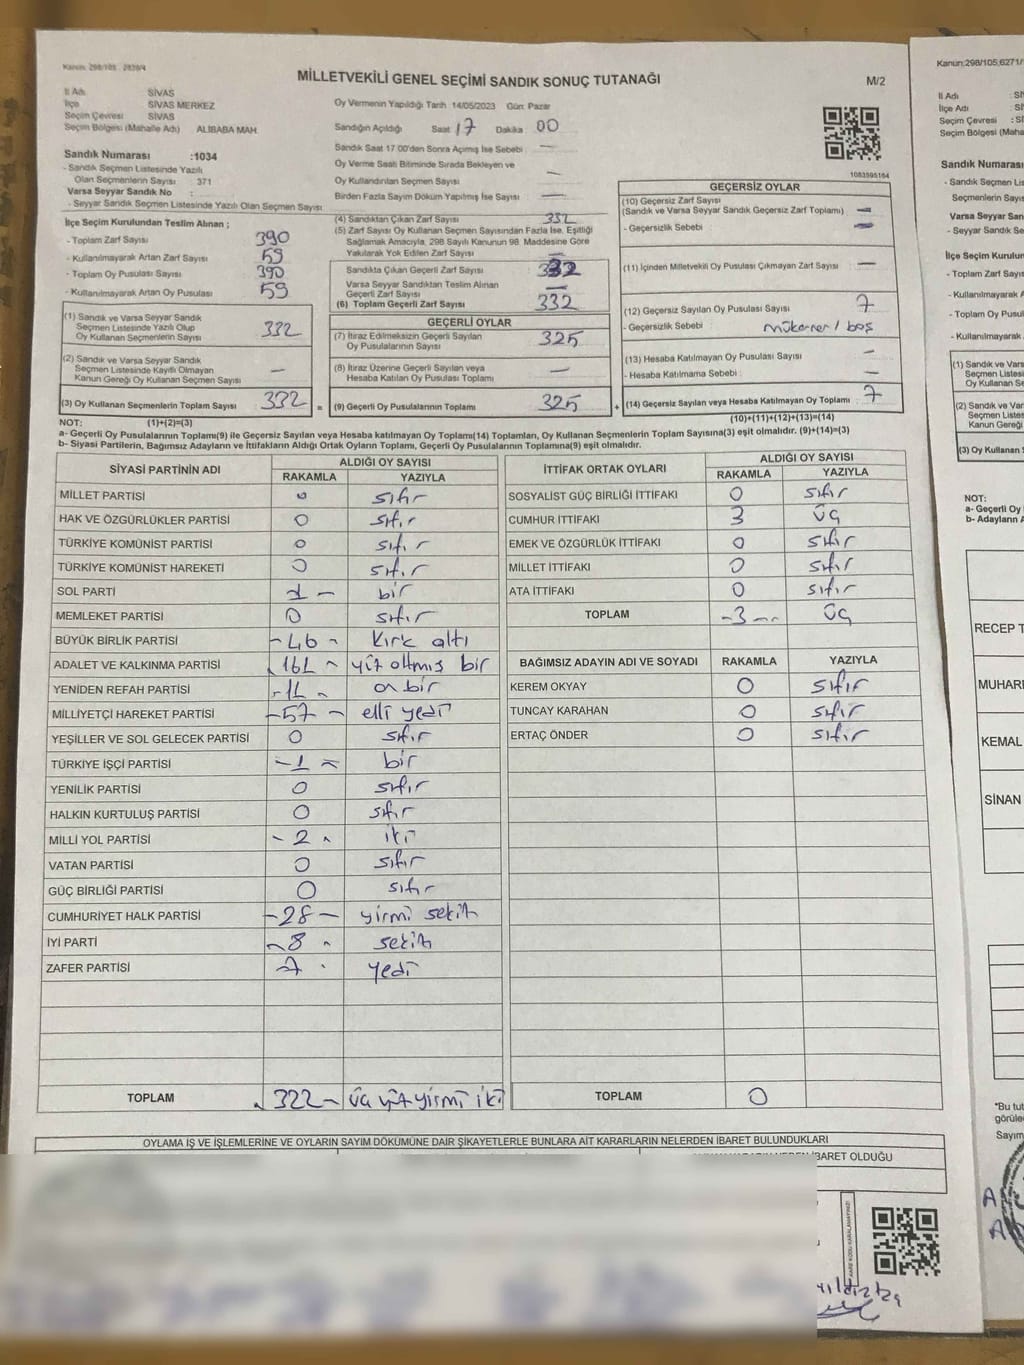 Kanun: 298/105
MİLLETVEKİLİ GENEL SEÇİMİ SANDIK SONUÇ TUTANAĞI
M/2
İl Adı SİVAS
İlçe SİVAS MERKEZ
Seçim Çevresi SİVAS
Seçim Bölgesi (Mahalle Adı) ALİBABA MAH.
Sandık Numarası :1034
- Sandık Seçmen Listesinde Yazılı
Olan Seçmenlerin Sayısı : 371
Varsa Seyyar Sandık No :
- Seyyar Sandık Seçmen Listesinde Yazılı Olan Seçmen Sayısı
Oy Vermenin Yapıldığı Tarih 14/05/2023 Gün: Pazar
Sandığın Açıldığı Saat 17 Dakika 00
Sandık Saat 17:00'den Sonra Açımış İse Sebebi —
Oy Verme Saati Bitiminde Sırada Bekleyen ve
Oy Kullandırılan Seçmen Sayısı —
Birden Fazla Sayım Döküm Yapılmış İse Sayısı —
1083595164
İlçe Seçim Kurulundan Teslim Alınan ;
- Toplam Zarf Sayısı 390
- Kullanılmayarak Artan Zarf Sayısı 59
- Toplam Oy Pusulası Sayısı 390
- Kullanılmayarak Artan Oy Pusulası 59
(1) Sandık ve Varsa Seyyar Sandık
Seçmen Listesinde Yazılı Olup
Oy Kullanan Seçmenlerin Sayısı 332
(2) Sandık ve Varsa Seyyar Sandık
Seçmen Listesinde Kayıtlı Olmayan
Kanun Gereği Oy Kullanan Seçmen Sayısı —
(3) Oy Kullanan Seçmenlerin Toplam Sayısı 332 =
(4) Sandıktan Çıkan Zarf Sayısı 332
(5) Zarf Sayısı Oy Kullanan Seçmen Sayısından Fazla İse, Eşitliği
Sağlamak Amacıyla, 298 Sayılı Kanunun 98. Maddesine Göre
Yakılarak Yok Edilen Zarf Sayısı —
Sandıkta Çıkan Geçerli Zarf Sayısı 332
Varsa Seyyar Sandıktan Teslim Alınan
Geçerli Zarf Sayısı —
(6) Toplam Geçerli Zarf Sayısı 332
GEÇERLİ OYLAR
(7) İtiraz Edilmeksizin Geçerli Sayılan
Oy Pusulalarının Sayısı 325
(8) İtiraz Üzerine Geçerli Sayılan veya
Hesaba Katılan Oy Pusulası Toplamı —
(9) Geçerli Oy Pusulalarının Toplamı 325 +
GEÇERSİZ OYLAR
(10) Geçersiz Zarf Sayısı
(Sandık ve Varsa Seyyar Sandık Geçersiz Zarf Toplamı) —
- Geçersizlik Sebebi : —
(11) İçinden Milletvekili Oy Pusulası Çıkmayan Zarf Sayısı —
(12) Geçersiz Sayılan Oy Pusulası Sayısı 7
- Geçersizlik Sebebi : mükerrer / boş
(13) Hesaba Katılmayan Oy Pusulası Sayısı —
- Hesaba Katılmama Sebebi : —
(14) Geçersiz Sayılan veya Hesaba Katılmayan Oy Toplamı 7
NOT: (1)+(2)=(3) (10)+(11)+(12)+(13)=(14)
a- Geçerli Oy Pusulalarının Toplamı(9) ile Geçersiz Sayılan veya Hesaba katılmayan Oy Toplamı(14) Toplamları, Oy Kullanan Seçmenlerin Toplam Sayısına(3) eşit olmalıdır. (9)+(14)=(3)
b- Siyasi Partilerin, Bağımsız Adayların ve İttifakların Aldığı Ortak Oyların Toplamı, Geçerli Oy Pusulalarının Toplamına(9) eşit olmalıdır.
SİYASİ PARTİNİN ADI ALDIĞI OY SAYISI
RAKAMLA YAZIYLA
MİLLET PARTİSİ 0 sıfır
HAK VE ÖZGÜRLÜKLER PARTİSİ 0 sıfır
TÜRKİYE KOMÜNİST PARTİSİ 0 sıfır
TÜRKİYE KOMÜNİST HAREKETİ 0 sıfır
SOL PARTİ 1 - bir
MEMLEKET PARTİSİ 0 sıfır
BÜYÜK BİRLİK PARTİSİ - 46 - kırk altı
ADALET VE KALKINMA PARTİSİ - 161 - yüz altmış bir
YENİDEN REFAH PARTİSİ - 11 - on bir
MİLLİYETÇİ HAREKET PARTİSİ - 57 - elli yedi
YEŞİLLER VE SOL GELECEK PARTİSİ 0 sıfır
TÜRKİYE İŞÇİ PARTİSİ - 1 - bir
YENİLİK PARTİSİ 0 sıfır
HALKIN KURTULUŞ PARTİSİ 0 sıfır
MİLLİ YOL PARTİSİ - 2 - iki
VATAN PARTİSİ 0 sıfır
GÜÇ BİRLİĞİ PARTİSİ 0 sıfır
CUMHURİYET HALK PARTİSİ - 28 - yirmi sekiz
İYİ PARTİ - 8 - sekiz
ZAFER PARTİSİ 7 - yedi
TOPLAM - 322 - üç yüz yirmi iki
İTTİFAK ORTAK OYLARI ALDIĞI OY SAYISI
RAKAMLA YAZIYLA
SOSYALİST GÜÇ BİRLİĞİ İTTİFAKI 0 sıfır
CUMHUR İTTİFAKI 3 üç
EMEK VE ÖZGÜRLÜK İTTİFAKI 0 sıfır
MİLLET İTTİFAKI 0 sıfır
ATA İTTİFAKI 0 sıfır
TOPLAM - 3 - üç
BAĞIMSIZ ADAYIN ADI VE SOYADI RAKAMLA YAZIYLA
KEREM OKYAY 0 sıfır
TUNCAY KARAHAN 0 sıfır
ERTAÇ ÖNDER 0 sıfır
TOPLAM 0
OYLAMA İŞ VE İŞLEMLERİNE VE OYLARIN SAYIM DÖKÜMÜNE DAİR ŞİKAYETLERLE BUNLARA AİT KARARLARIN NELERDEN İBARET BULUNDUKLARI
İBARET OLDUĞU
Kanun:298/105;6271/
İl Adı : Sİ
İlçe Adı : Sİ
Seçim Çevresi : Sİ
Seçim Bölgesi (Mahalle Adı)
Sandık Numarası
- Sandık Seçmen Lis
Seçmenlerin Sayıs
Varsa Seyyar San
- Seyyar Sandık Se
İlçe Seçim Kurulun
- Toplam Zarf Sayıs
- Kullanılmayarak A
- Toplam Oy Pusul
- Kullanılmayarak
(1) Sandık ve Vars
Seçmen Listesi
Oy Kullanan Se
(2) Sandık ve Vars
Seçmen Listes
Kanun Gereği
(3) Oy Kullanan S
NOT:
a- Geçerli Oy
b- Adayların A
RECEP T
MUHARR
KEMAL
SİNAN
*Bu tut
görüle
Sayım